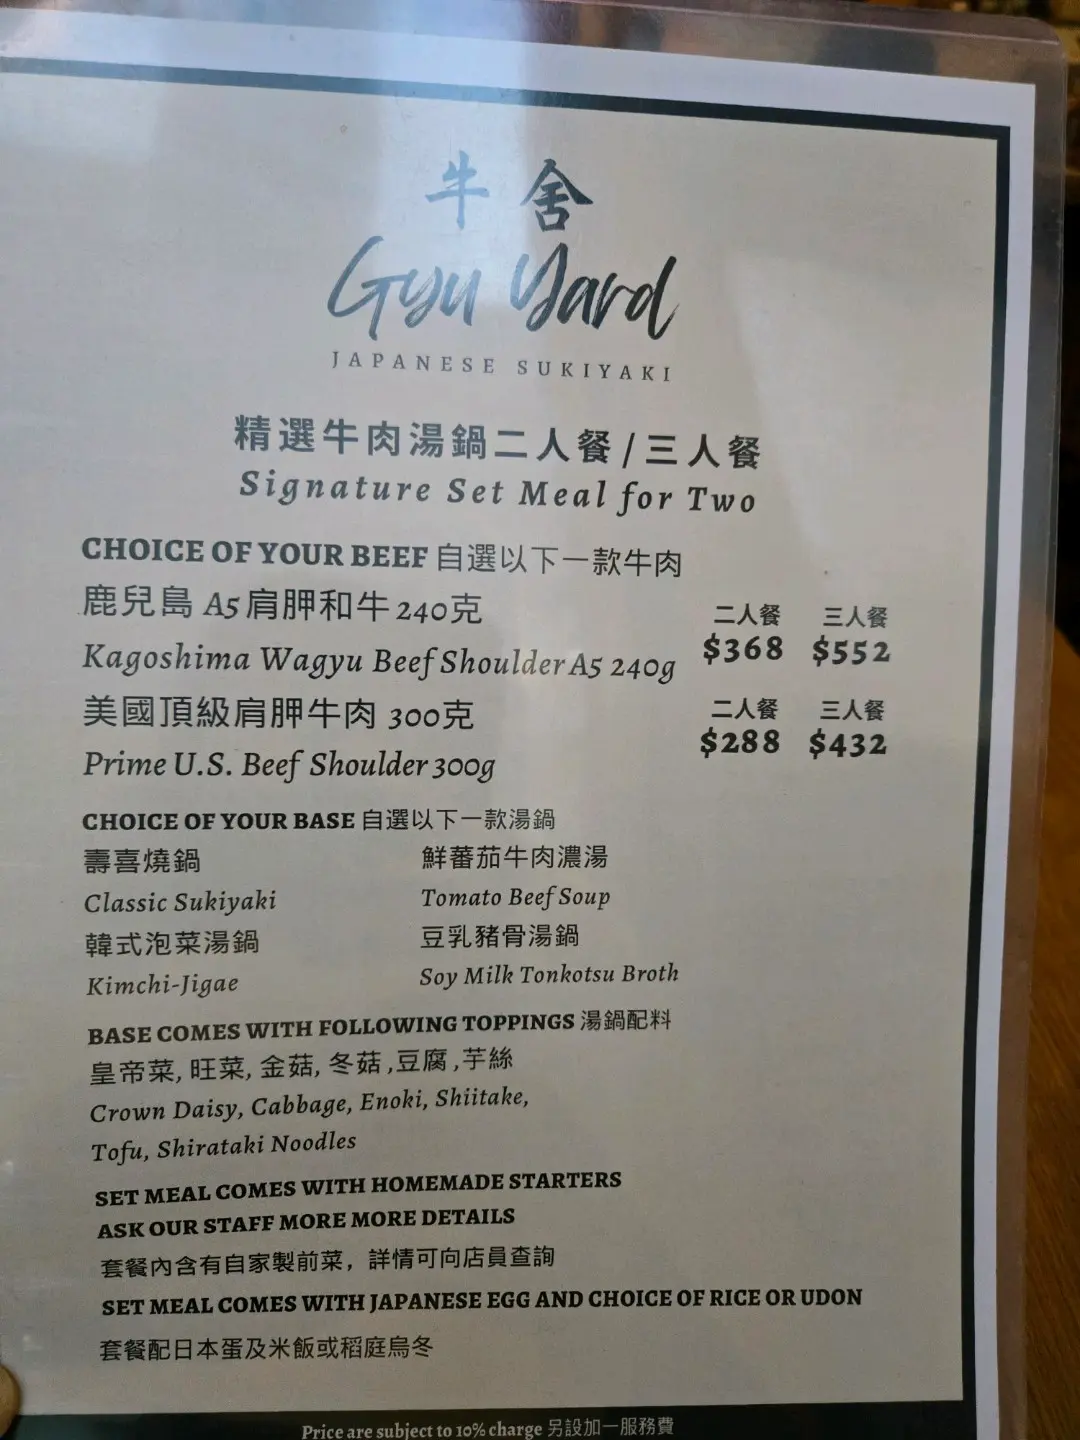 牛舍
Gyu Yard
JAPANESE SUKIYAKI
精選牛肉湯鍋二人餐/三人餐
Signature Set Meal for Two
CHOICE OF YOUR BEEF 自選以下一款牛肉
鹿兒島 A5肩胛和牛240克
二人餐 三人餐
Kagoshima Wagyu Beef Shoulder A5 240g
$368 $552
美國頂級肩胛牛肉 300克
二人餐 三人餐
Prime U.S. Beef Shoulder 300g
$288 $432
CHOICE OF YOUR BASE 自選以下一款湯鍋
壽喜燒鍋 鮮蕃茄牛肉濃湯
Classic Sukiyaki Tomato Beef Soup
韓式泡菜湯鍋 豆乳豬骨湯鍋
Kimchi-Jigae Soy Milk Tonkotsu Broth
BASE COMES WITH FOLLOWING TOPPINGS 湯鍋配料
皇帝菜, 旺菜, 金菇, 冬菇 ,豆腐 ,芋絲
Crown Daisy, Cabbage, Enoki, Shiitake,
Tofu, Shirataki Noodles
SET MEAL COMES WITH HOMEMADE STARTERS
ASK OUR STAFF MORE MORE DETAILS
套餐內含有自家製前菜，詳情可向店員查詢
SET MEAL COMES WITH JAPANESE EGG AND CHOICE OF RICE OR UDON
套餐配日本蛋及米飯或稻庭烏冬
Price are subject to 10% charge 另設加一服務費